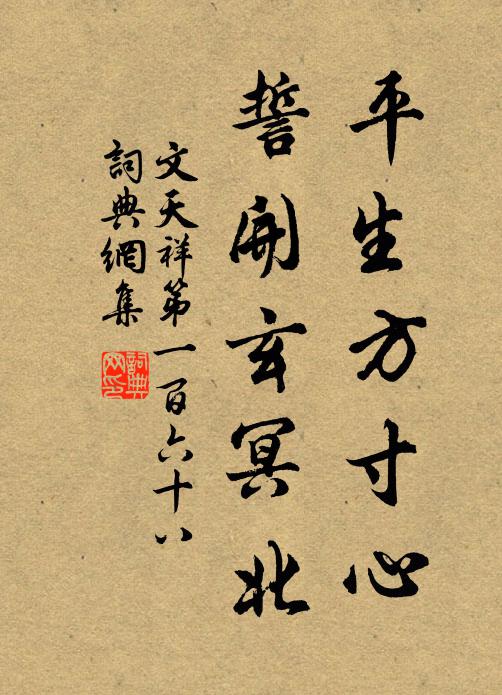 平生方寸心
誓開玄冥北
文天祥第一百六十八
詞典網集
詞典
网印